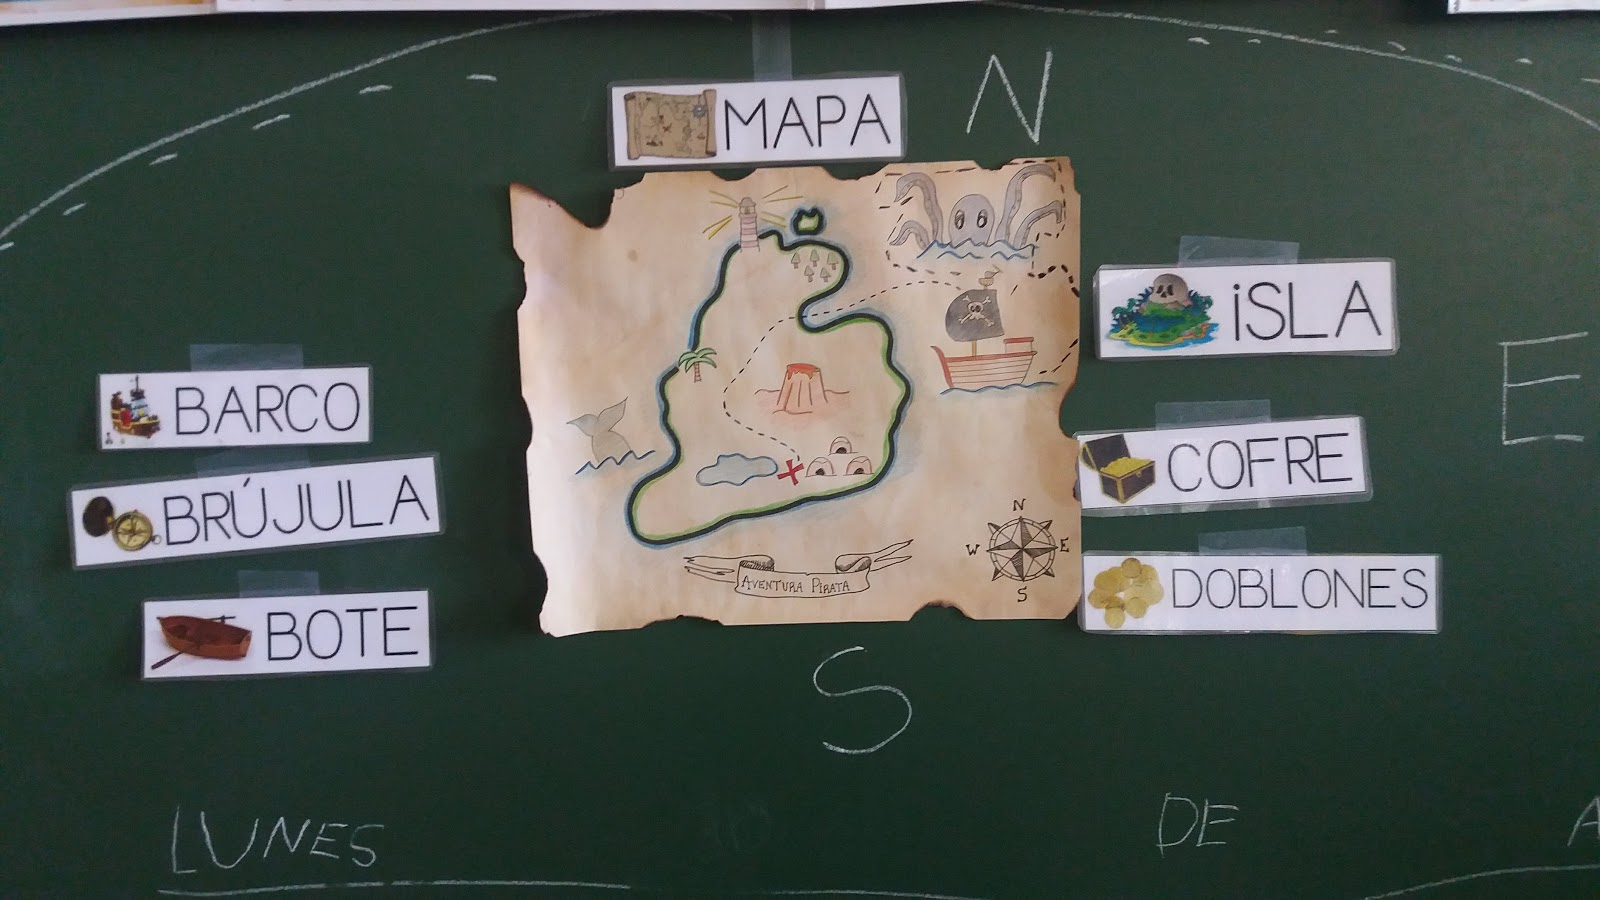 MAPA
N
iSLA
E
BARCO
COFRE
BRÚJULA
DOBLONES
BOTE
N
W E
S
AVENTURA PIRATA
S
LUNES DE